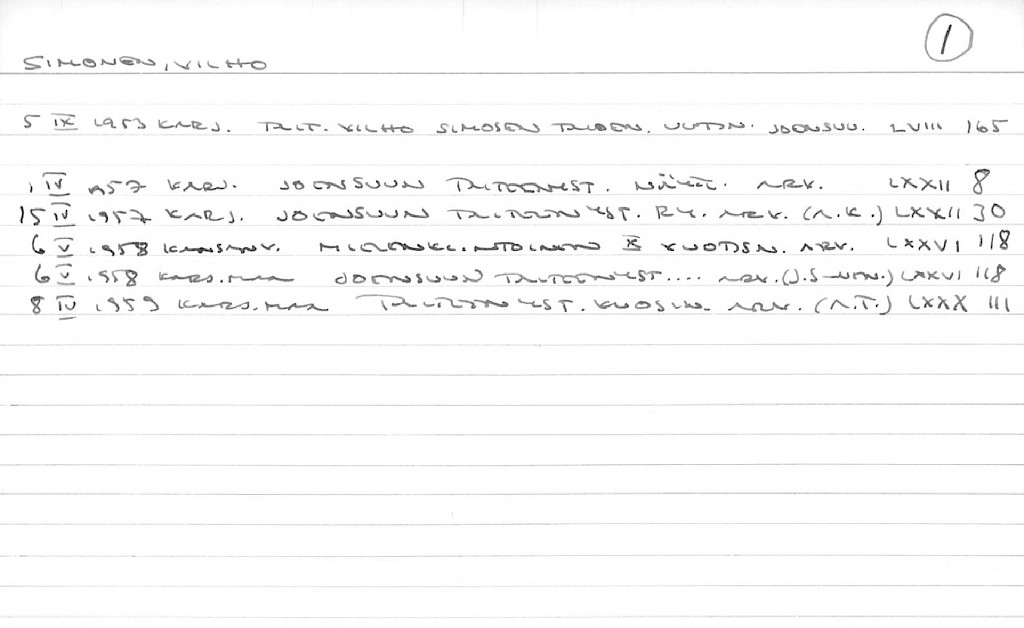 1
SIMONEN, VILHO
5 IX 1953 KARJ. TAIT. VILHO SIMOSEN TAIDEN. UUTIN. JOENSUU. LVIII 165
1 IV 1957 KARJ. JOENSUUN TAITEENYST. NÄYTT. ARV. LXXII 8
15 IV 1957 KARJ. JOENSUUN TAITEENYST. RY. ARV. (A.K.) LXXII 30
6 V 1958 KANSANV. X VUOTISN. ARV. LXXVI 118
6 V 1958 KARJ.MAA JOENSUUN TAITEENYST.... ARV. (J.S-NEN.) LXXVI 118
8 IV 1959 KARJ.MAA TAITEENYST. VUOSIN. ARV. (A.T.) LXXX 111